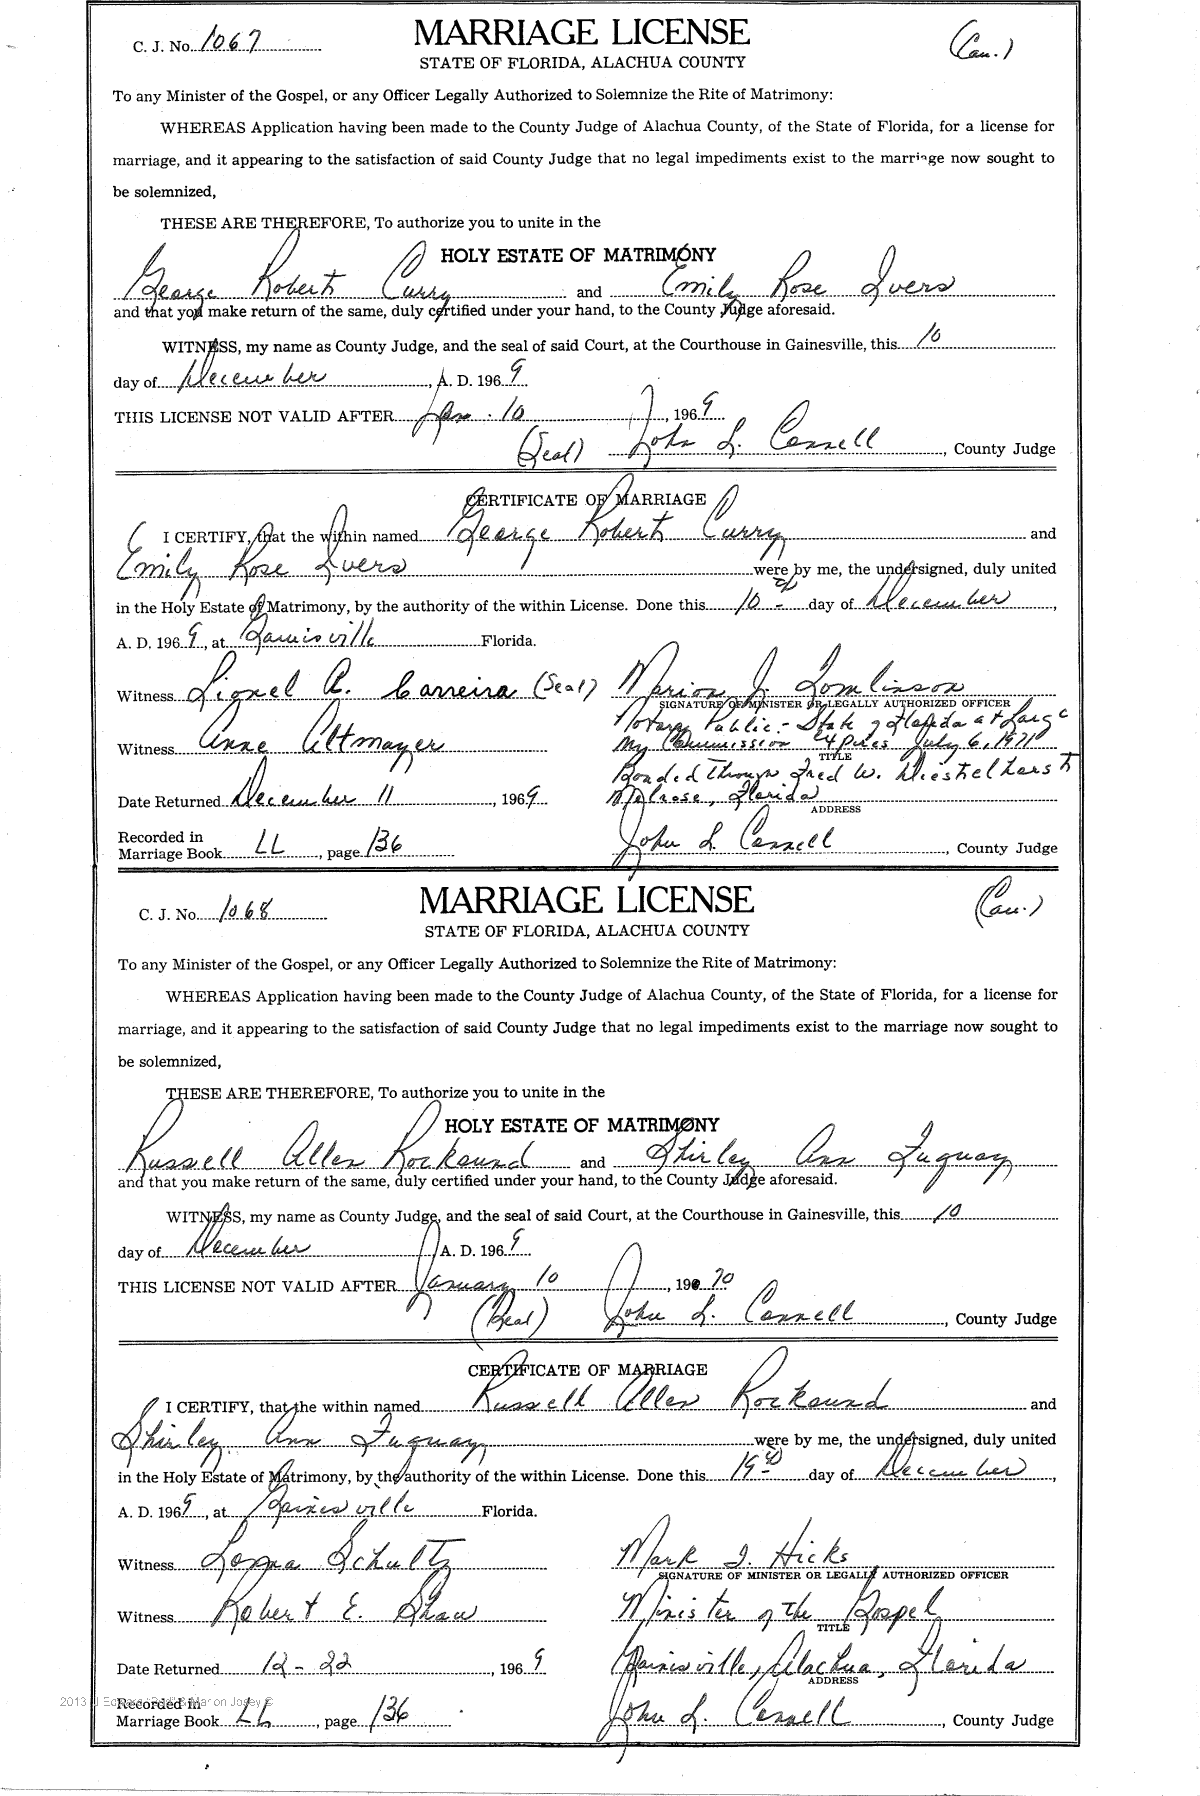 C. J. No. 1067 MARRIAGE LICENSE (Cau.)
STATE OF FLORIDA, ALACHUA COUNTY
To any Minister of the Gospel, or any Officer Legally Authorized to Solemnize the Rite of Matrimony:
WHEREAS Application having been made to the County Judge of Alachua County, of the State of Florida, for a license for
marriage, and it appearing to the satisfaction of said County Judge that no legal impediments exist to the marriage now sought to
be solemnized,
THESE ARE THEREFORE, To authorize you to unite in the
HOLY ESTATE OF MATRIMONY
George Robert Curry and Emily Rose Ivers
and that you make return of the same, duly certified under your hand, to the County Judge aforesaid.
WITNESS, my name as County Judge, and the seal of said Court, at the Courthouse in Gainesville, this 10
day of December, A. D. 1969
THIS LICENSE NOT VALID AFTER Jan. 10, 1969
(Seal) John L. Connell, County Judge
CERTIFICATE OF MARRIAGE
I CERTIFY, that the within named George Robert Curry and
Emily Rose Ivers were by me, the undersigned, duly united
in the Holy Estate of Matrimony, by the authority of the within License. Done this 10th day of December,
A. D. 1969, at Gainisville Florida.
Witness Lionel A. Carreira (Seal) Marion J. Tomlinson
SIGNATURE OF MINISTER OR LEGALLY AUTHORIZED OFFICER
Notary Public - State of Florida at Large
Witness Anne Altmayer My Commission Expires July 6, 1971
TITLE
Bonded Through Fred W. Diestelhorst
Date Returned December 11, 1969 Melrose, Florida
ADDRESS
Recorded in
Marriage Book LL, page 136 John L. Connell, County Judge
C. J. No. 1068 MARRIAGE LICENSE (Cau.)
STATE OF FLORIDA, ALACHUA COUNTY
To any Minister of the Gospel, or any Officer Legally Authorized to Solemnize the Rite of Matrimony:
WHEREAS Application having been made to the County Judge of Alachua County, of the State of Florida, for a license for
marriage, and it appearing to the satisfaction of said County Judge that no legal impediments exist to the marriage now sought to
be solemnized,
THESE ARE THEREFORE, To authorize you to unite in the
HOLY ESTATE OF MATRIMONY
Russell Allen Rocksund and Shirley Ann Fuquay
and that you make return of the same, duly certified under your hand, to the County Judge aforesaid.
WITNESS, my name as County Judge, and the seal of said Court, at the Courthouse in Gainesville, this 10
day of December A. D. 1969
THIS LICENSE NOT VALID AFTER January 10, 1970
(Seal) John L. Connell, County Judge
CERTIFICATE OF MARRIAGE
I CERTIFY, that the within named Russell Allen Rocksund and
Shirley Ann Fuquay were by me, the undersigned, duly united
in the Holy Estate of Matrimony, by the authority of the within License. Done this 19th day of December,
A. D. 1969, at Gainesville Florida.
Witness Lorna Schultz Mark I. Hicks
SIGNATURE OF MINISTER OR LEGALLY AUTHORIZED OFFICER
Witness Robert E. Shaw Minister of the Gospel
TITLE
Date Returned 12-22, 1969 Gainesville, Alachua, Florida
ADDRESS
Recorded in
Marriage Book LL, page 136 John L. Connell, County Judge